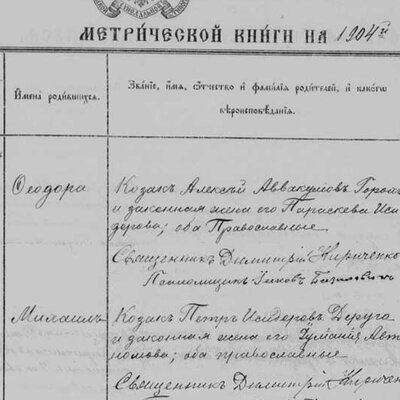 МЕТРИ́ЧЕСКОЙ КНИ́ГИ НА 1904й
И҆мена̀ роди́вшихсѧ.
Зва́нїе, и҆́мѧ, ѻ҆́тчество и҆ фами́лїѧ роди́телей, и҆ како́гѡ вѣроисповѣ́данїѧ.
Ѳеодора
Козакъ Алексѣй Аввакумовъ
и законная жена его Параскева Иси-
дорова; оба Православные
Священникъ Димитрій Кириченко
Псаломщикъ Іаковъ
Михаилъ
Козакъ Петръ Исидоровъ Деруга
и законная жена его Іуманія Авт
номова; оба православные
Священникъ Димитрій Кириченко